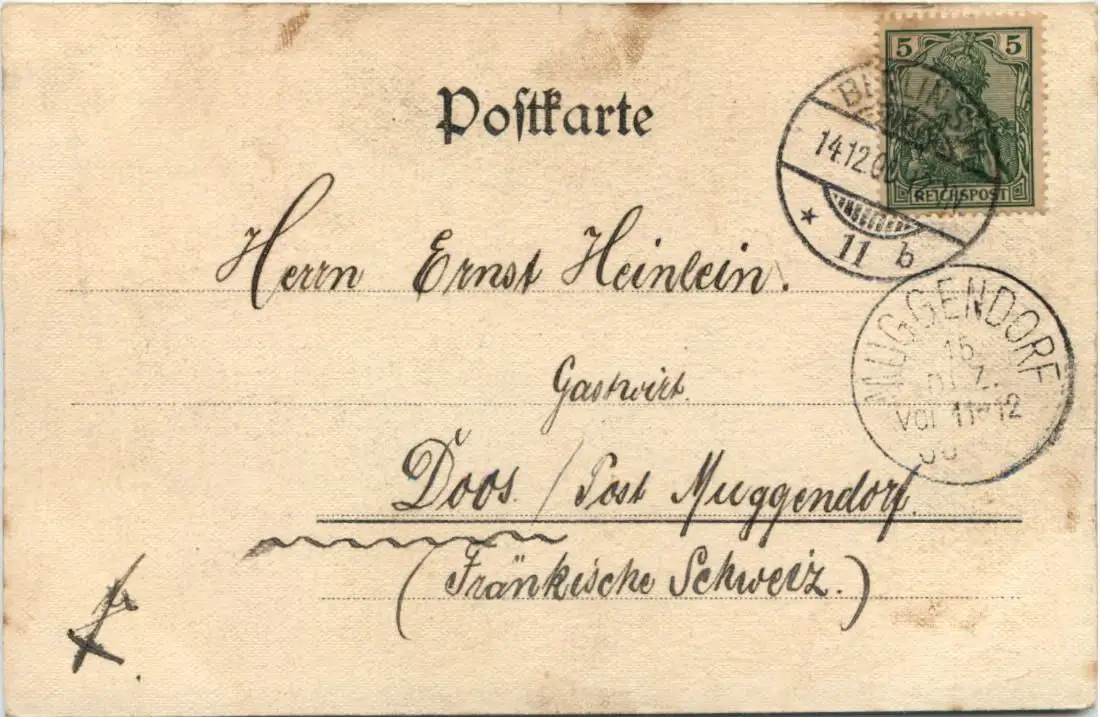 Postkarte
5 5
REICHSPOST
BERLIN
14.12.00
* 11 b
MUGGENDORF
15.
DEZ.
Vor 11-12
00
Herrn Ernst Heinlein.
Gastwirt.
Doos. / Post Muggendorf.
(Fränkische Schweiz.)